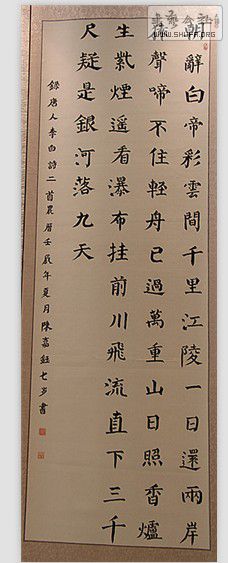 朝辭白帝彩雲間千里江陵一日還兩岸
聲啼不住輕舟已過萬重山日照香爐
生紫煙遙看瀑布挂前川飛流直下三千
尺疑是銀河落九天
錄唐人李白詩二首農曆壬戌年夏月陳嘉鈺七岁書
WWW.SHUFA.ORG